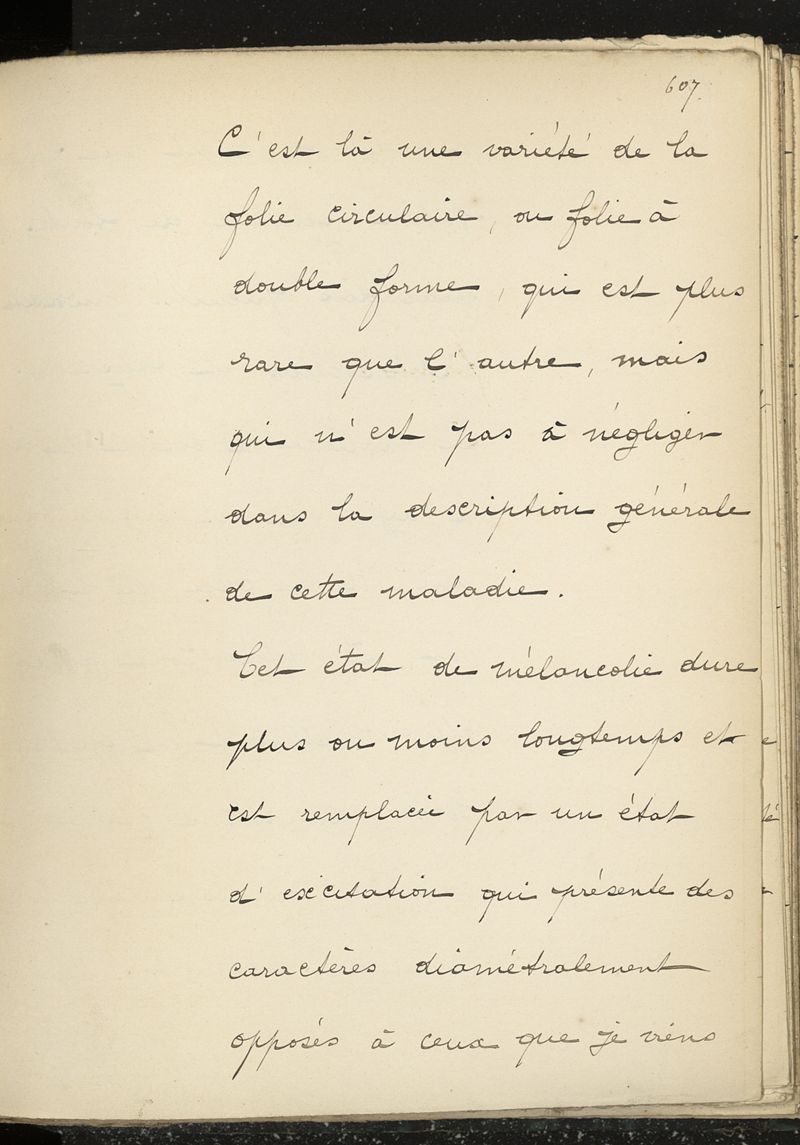 607.
C'est là une variété de la
folie circulaire, ou folie à
double forme, qui est plus
rare que l'autre, mais
qui n'est pas à négliger
dans la description générale
de cette maladie.
Cet état de mélancolie dure
plus ou moins longtemps et
est remplacée par un état
d'excitation qui présente des
caractères diamétralement
opposés à ceux que je viens